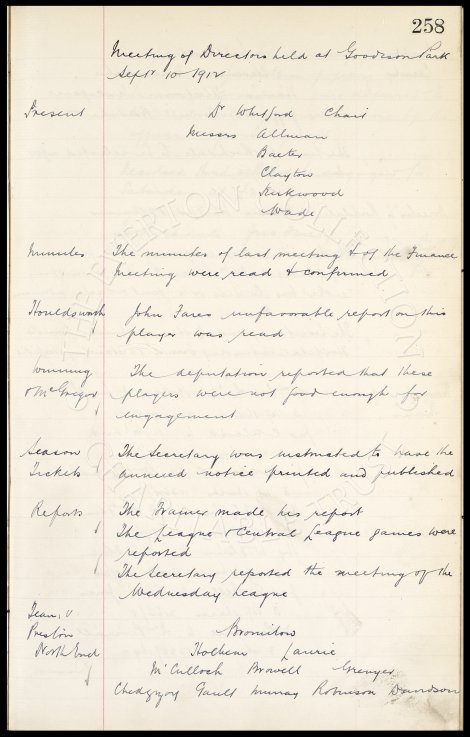 258
Meeting of Directors held at Goodison Park
Septr 10 1912
Present Dr Whitford Chair
Messrs Allman
Baxter
Clayton
Kirkwood
Wade
Minutes The minutes of last meeting & of the Finance
Meeting were read & confirmed
Houldsworth John Fares unfavorable report on this
player was read
The deputation reported that these
& McGregor players were not good enough for
engagement
Season The Secretary was instructed to have the
Tickets annexed notice printed and published
Reports The Trainer made his report
The League & Central League games were
reported
The Secretary reported the meeting of the
Wednesday League
Team, v
Preston Bromilow
North End Holbem Laurie
McCulloch Browell Grenyer
Chedgzoy Gault Murray Robinson Davidson
THE EVERTON COLLECTION
CHARITABLE TRUST